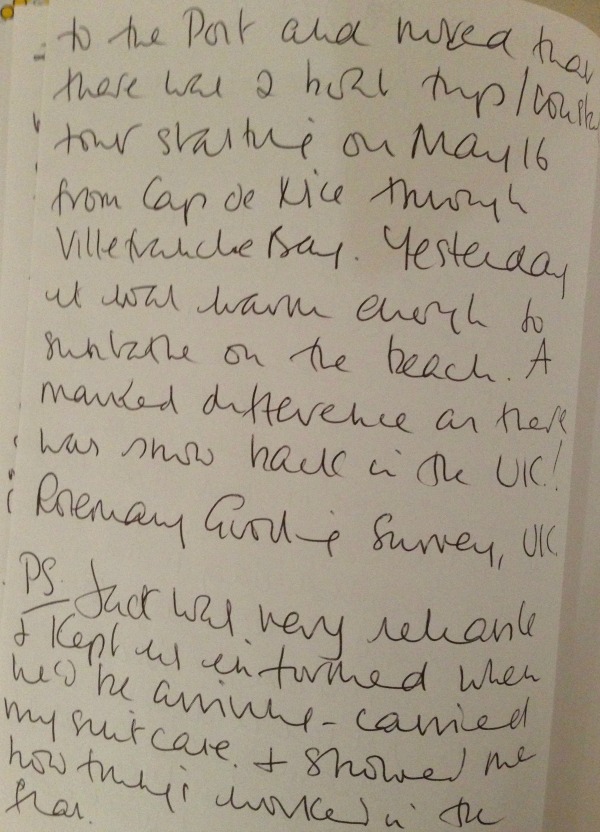 to the Port and noticed that
there was a boat trip/coastal
tour starting on May 16
from Cap de Nice through
Villefranche Bay. Yesterday
it was warm enough to
sunbathe on the beach. A
marked difference as there
was snow back in the UK!
Rosemary Surrey, UK
PS. Jack was very reliable
& kept us informed when
he'd be arriving - carried
my suitcase & showed me
how things worked in the
flat.